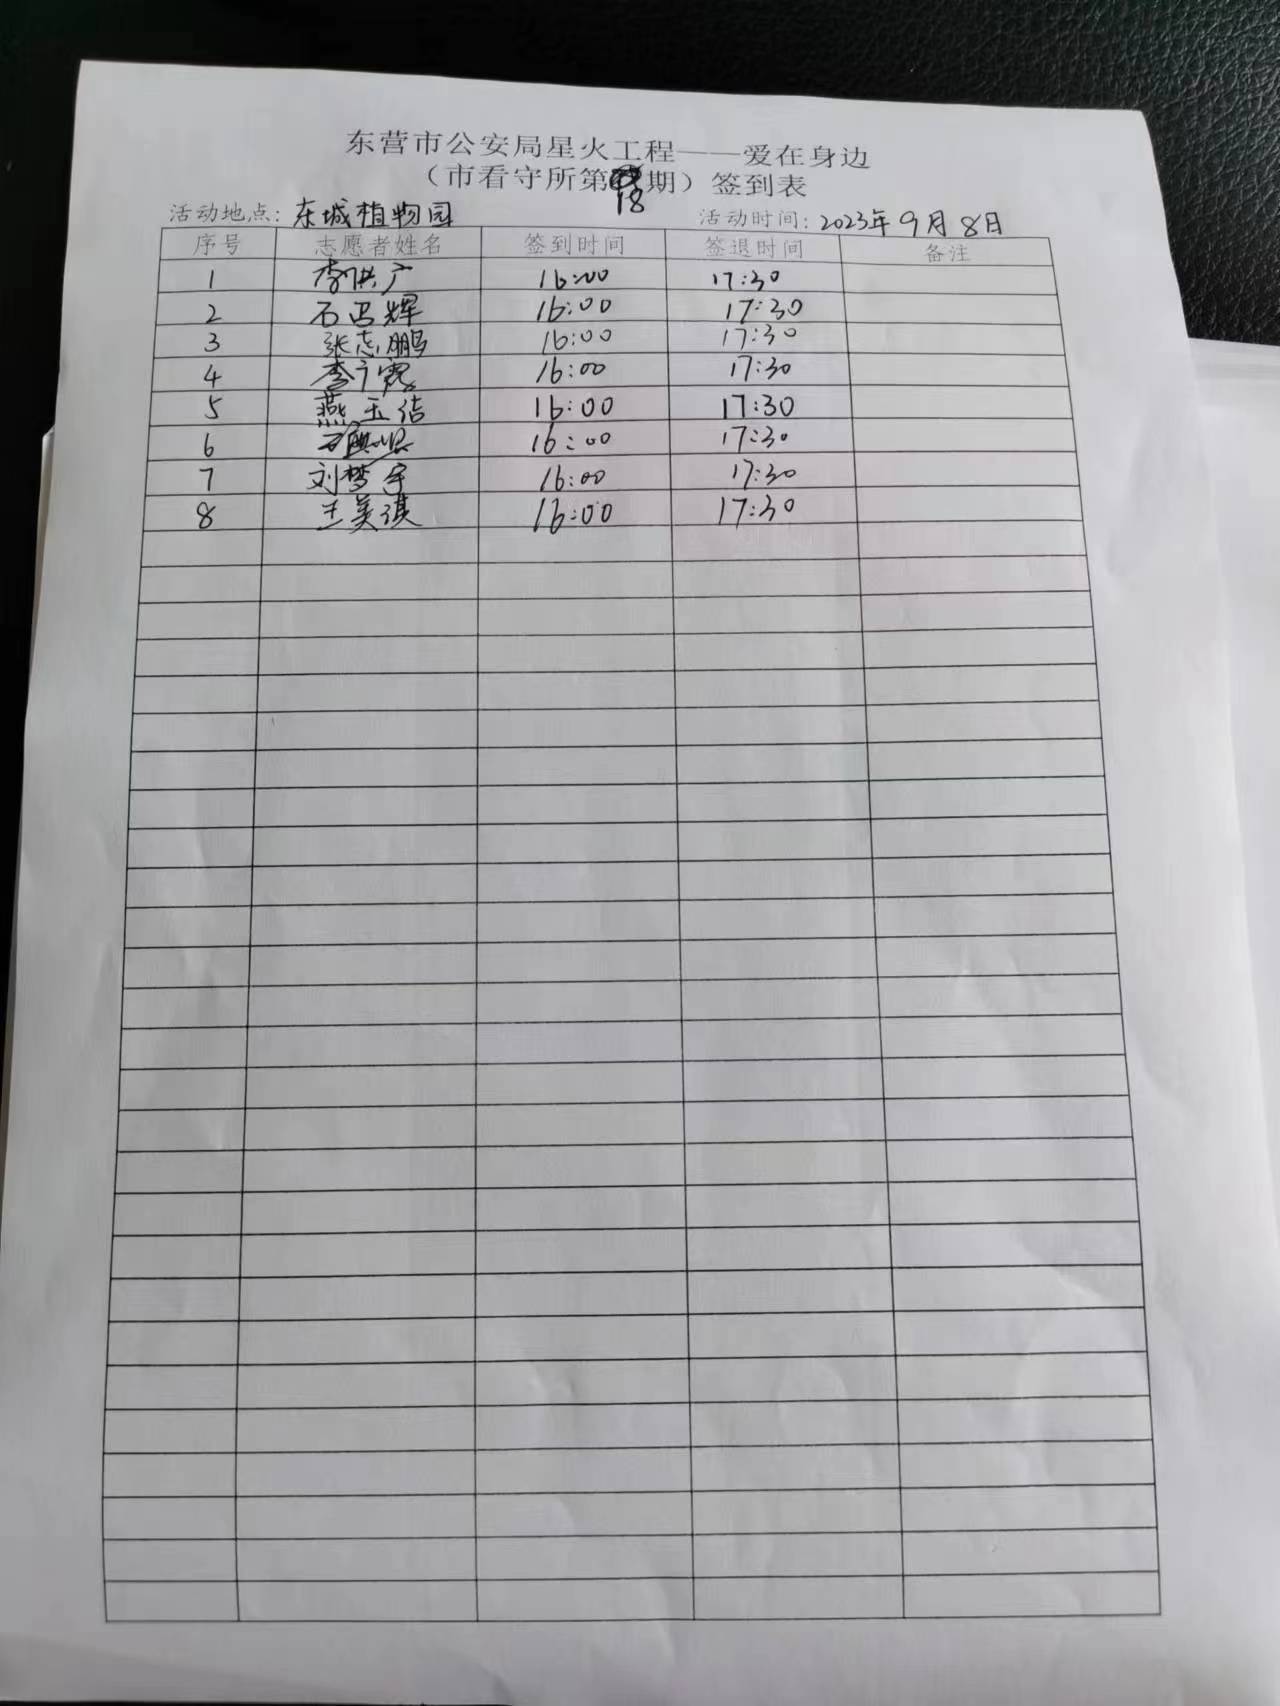 东营市公安局星火工程——爱在身边
（市看守所第18期）签到表
活动地点：东城植物园 活动时间：2023年9月8日
序号 志愿者姓名 签到时间 签退时间 备注
1 李洪广 16:00 17:30
2 石冯辉 16:00 17:30
3 张志鹏 16:00 17:30
4 李广霞 16:00 17:30
5 燕玉洁 16:00 17:30
6 16:00 17:30
7 刘梦宇 16:00 17:30
8 王美淇 16:00 17:30